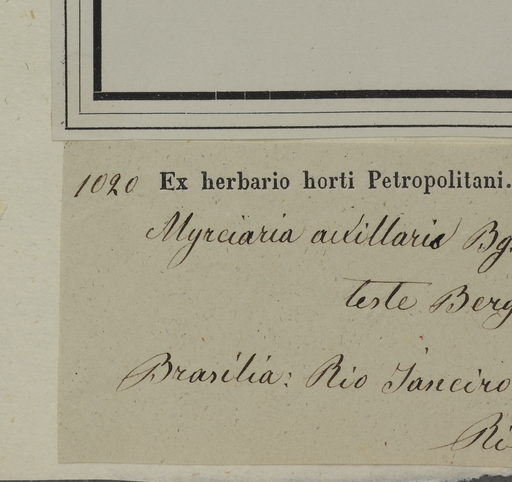 1020 Ex herbario horti Petropolitani.
Myrciaria axillaris Bg.
teste Berg
Brasilia: Rio Janeiro
Ri